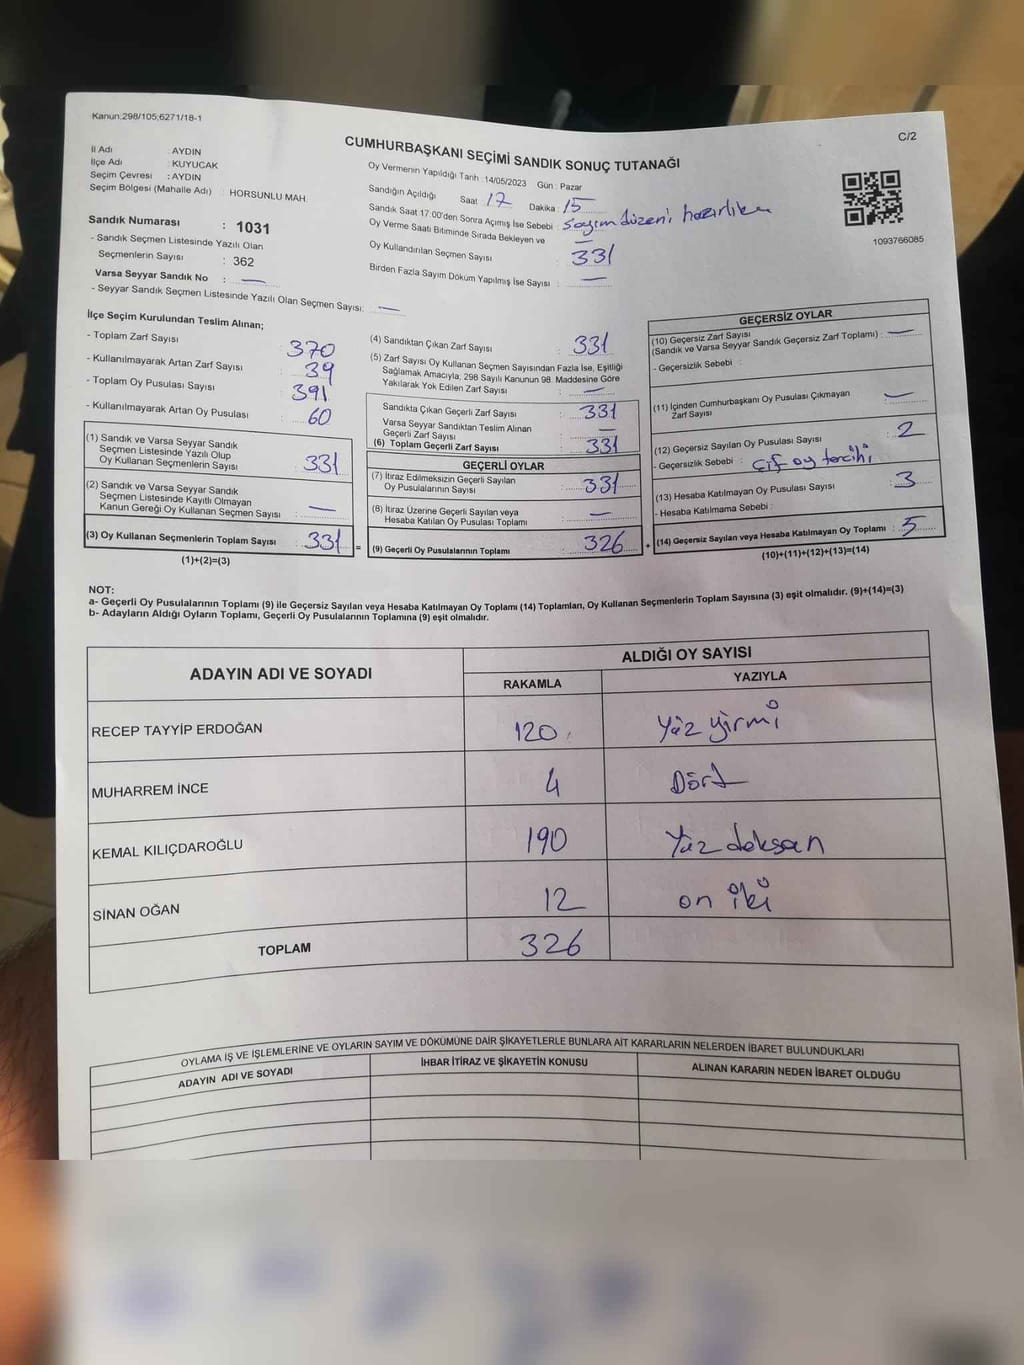 Kanun:298/105;6271/18-1
C/2
CUMHURBAŞKANI SEÇİMİ SANDIK SONUÇ TUTANAĞI
İl Adı : AYDIN
İlçe Adı : KUYUCAK
Seçim Çevresi : AYDIN
Seçim Bölgesi (Mahalle Adı) : HORSUNLU MAH.
Oy Vermenin Yapıldığı Tarih :14/05/2023 Gün : Pazar
Sandığın Açıldığı Saat 17 Dakika : 15
Sandık Saat 17:00'den Sonra Açımış İse Sebebi : Sayım düzeni
Oy Verme Saati Bitiminde Sırada Bekleyen ve
Oy Kullandırılan Seçmen Sayısı : 331
Birden Fazla Sayım Döküm Yapılmış İse Sayısı : —
1093766085
Sandık Numarası : 1031
- Sandık Seçmen Listesinde Yazılı Olan
Seçmenlerin Sayısı : 362
Varsa Seyyar Sandık No : —
- Seyyar Sandık Seçmen Listesinde Yazılı Olan Seçmen Sayısı: —
İlçe Seçim Kurulundan Teslim Alınan;
- Toplam Zarf Sayısı : 370
- Kullanılmayarak Artan Zarf Sayısı : 39
- Toplam Oy Pusulası Sayısı : 391
- Kullanılmayarak Artan Oy Pusulası : 60
(1) Sandık ve Varsa Seyyar Sandık
Seçmen Listesinde Yazılı Olup
Oy Kullanan Seçmenlerin Sayısı : 331
(2) Sandık ve Varsa Seyyar Sandık
Seçmen Listesinde Kayıtlı Olmayan
Kanun Gereği Oy Kullanan Seçmen Sayısı : —
(3) Oy Kullanan Seçmenlerin Toplam Sayısı : 331 =
(1)+(2)=(3)
(4) Sandıktan Çıkan Zarf Sayısı : 331
(5) Zarf Sayısı Oy Kullanan Seçmen Sayısından Fazla İse, Eşitliği
Sağlamak Amacıyla; 298 Sayılı Kanunun 98. Maddesine Göre
Yakılarak Yok Edilen Zarf Sayısı : —
Sandıkta Çıkan Geçerli Zarf Sayısı : 331
Varsa Seyyar Sandıktan Teslim Alınan
Geçerli Zarf Sayısı : —
(6) Toplam Geçerli Zarf Sayısı : 331
GEÇERLİ OYLAR
(7) İtiraz Edilmeksizin Geçerli Sayılan
Oy Pusulalarının Sayısı : 331
(8) İtiraz Üzerine Geçerli Sayılan veya
Hesaba Katılan Oy Pusulası Toplamı : —
(9) Geçerli Oy Pusulalarının Toplamı : 326 +
GEÇERSİZ OYLAR
(10) Geçersiz Zarf Sayısı
(Sandık ve Varsa Seyyar Sandık Geçersiz Zarf Toplamı) : —
- Geçersizlik Sebebi :
(11) İçinden Cumhurbaşkanı Oy Pusulası Çıkmayan
Zarf Sayısı : —
(12) Geçersiz Sayılan Oy Pusulası Sayısı : 2
- Geçersizlik Sebebi : Çif oy tercihi
(13) Hesaba Katılmayan Oy Pusulası Sayısı : 3
- Hesaba Katılmama Sebebi :
(14) Geçersiz Sayılan veya Hesaba Katılmayan Oy Toplamı : 5
(10)+(11)+(12)+(13)=(14)
NOT:
a- Geçerli Oy Pusulalarının Toplamı (9) ile Geçersiz Sayılan veya Hesaba Katılmayan Oy Toplamı (14) Toplamları, Oy Kullanan Seçmenlerin Toplam Sayısına (3) eşit olmalıdır. (9)+(14)=(3)
b- Adayların Aldığı Oyların Toplamı, Geçerli Oy Pusulalarının Toplamına (9) eşit olmalıdır.
ADAYIN ADI VE SOYADI
ALDIĞI OY SAYISI
RAKAMLA
YAZIYLA
RECEP TAYYİP ERDOĞAN 120 Yüz yirmi
MUHARREM İNCE 4 Dört
KEMAL KILIÇDAROĞLU 190 Yüz doksan
SİNAN OĞAN 12 on iki
TOPLAM 326
OYLAMA İŞ VE İŞLEMLERİNE VE OYLARIN SAYIM VE DÖKÜMÜNE DAİR ŞİKAYETLERLE BUNLARA AİT KARARLARIN NELERDEN İBARET BULUNDUKLARI
ADAYIN ADI VE SOYADI
İHBAR İTİRAZ VE ŞİKAYETİN KONUSU
ALINAN KARARIN NEDEN İBARET OLDUĞU